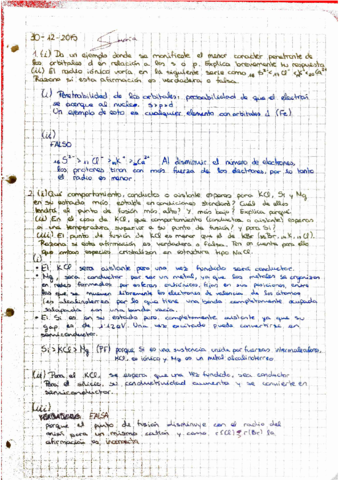 30-12-2015
1. (i) Da un ejemplo donde se manifieste el menor carácter penetrante de
los orbitales d en relación a los s o p. Explica brevemente tu respuesta
(ii) El radio iónico varía en la siguiente serie como 16S²⁻ < 17Cl⁻ < 19K⁺ < 20Ca²⁺
Razona si esta afirmación es verdadera o falsa.
(i) Penetrabilidad de los orbitales: probabilidad de que el electrón
se acerque al núcleo. s>p>d
Un ejemplo de esto es cualquier elemento con orbitales d (Fe)
(ii)
FALSO
16S²⁻ > 17Cl⁻ > 19K⁺ > 20Ca²⁺ Al disminuir el número de electrones,
los protones tiran con más fuerza de los electrones, por lo tanto
el radio es menor.
2. (i) Qué comportamiento, conductor o aislante esperas para KCl, Si y Mg
en su estado más estable en condiciones standard? Cuál de ellos
tendrá el punto de fusión más alto? Y más bajo? Explica porqué
(ii) En el caso de KCl, que comportamiento (conductor o aislante) esperas
si una temperatura superior a su punto de fusión? y para Si?
(iii) El punto de fusión de KCl es menor que el de KBr
Razona si esta afirmación es verdadera o falsa. Ten en cuenta para ello
que ambas especies cristalizan en estructura tipo NaCl.
(i)
• El KCl, será aislante pero una vez fundido será conductor.
• Mg, será conductor por ser un metal, ya que los metales se organizan
en redes formadas por esferas catiónicas, fijas en sus posiciones entre
las que se mueven libremente los electrones de valencia de los átomos
(es alcalinotérreo por lo que tiene una banda completamente ocupada
solapada con una banda vacía.
• El Si es en su estado puro completamente aislante ya que su
gap es de 1'120V. Una vez excitado puede convertirse en
semiconductor.
Si > KCl > Mg (PF) porque Si es una sustancia unida por fuerzas
KCl es iónico y Mg es un metal alcalinotérreo
(ii) Para el KCl, se espera que una vez fundido, sea conductor
Para el silicio, su conductividad aumenta y se convierte en
semiconductor.
(iii)
FALSA
porque el punto de fusión disminuye con el radio del
anión para un mismo catión y como r(Cl) < r(Br) la
afirmación es incorrecta